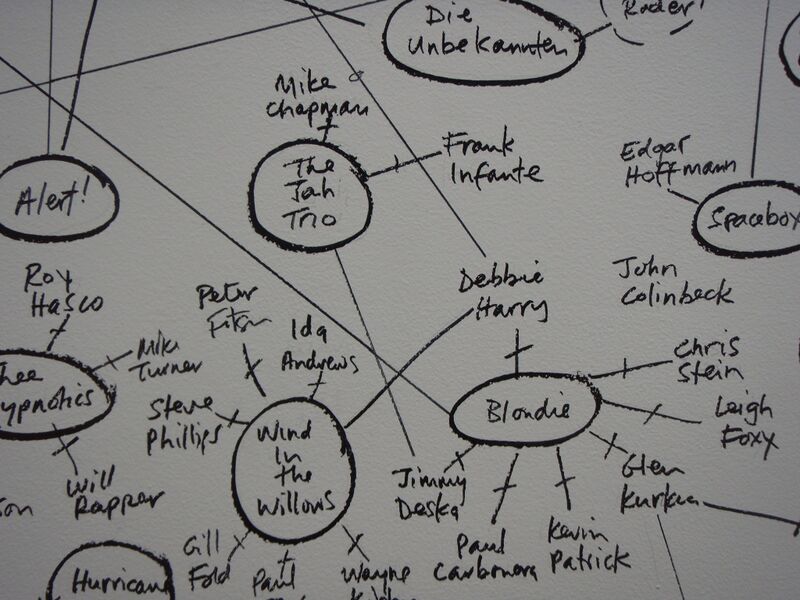 Die
Unbekannten
Rader!
Mike
Chapman
The
Jah
Trio
Frank
Infante
Edgar
Hoffmann
Alert!
Spacebox
Roy
Hasco
Peter
Ida
Andrews
Debbie
Harry
John
Colinbeck
Mike
Turner
Chris
Stein
Thee
Hypnotics
Steve
Phillips
Wind
In
the
Willows
Blondie
Leigh
Foxy
Will
Rapper
Jimmy
Deska
Glen
Gill
Fold
Paul
Wayne
Paul
Carbonara
Kevin
Patrick
Hurricane